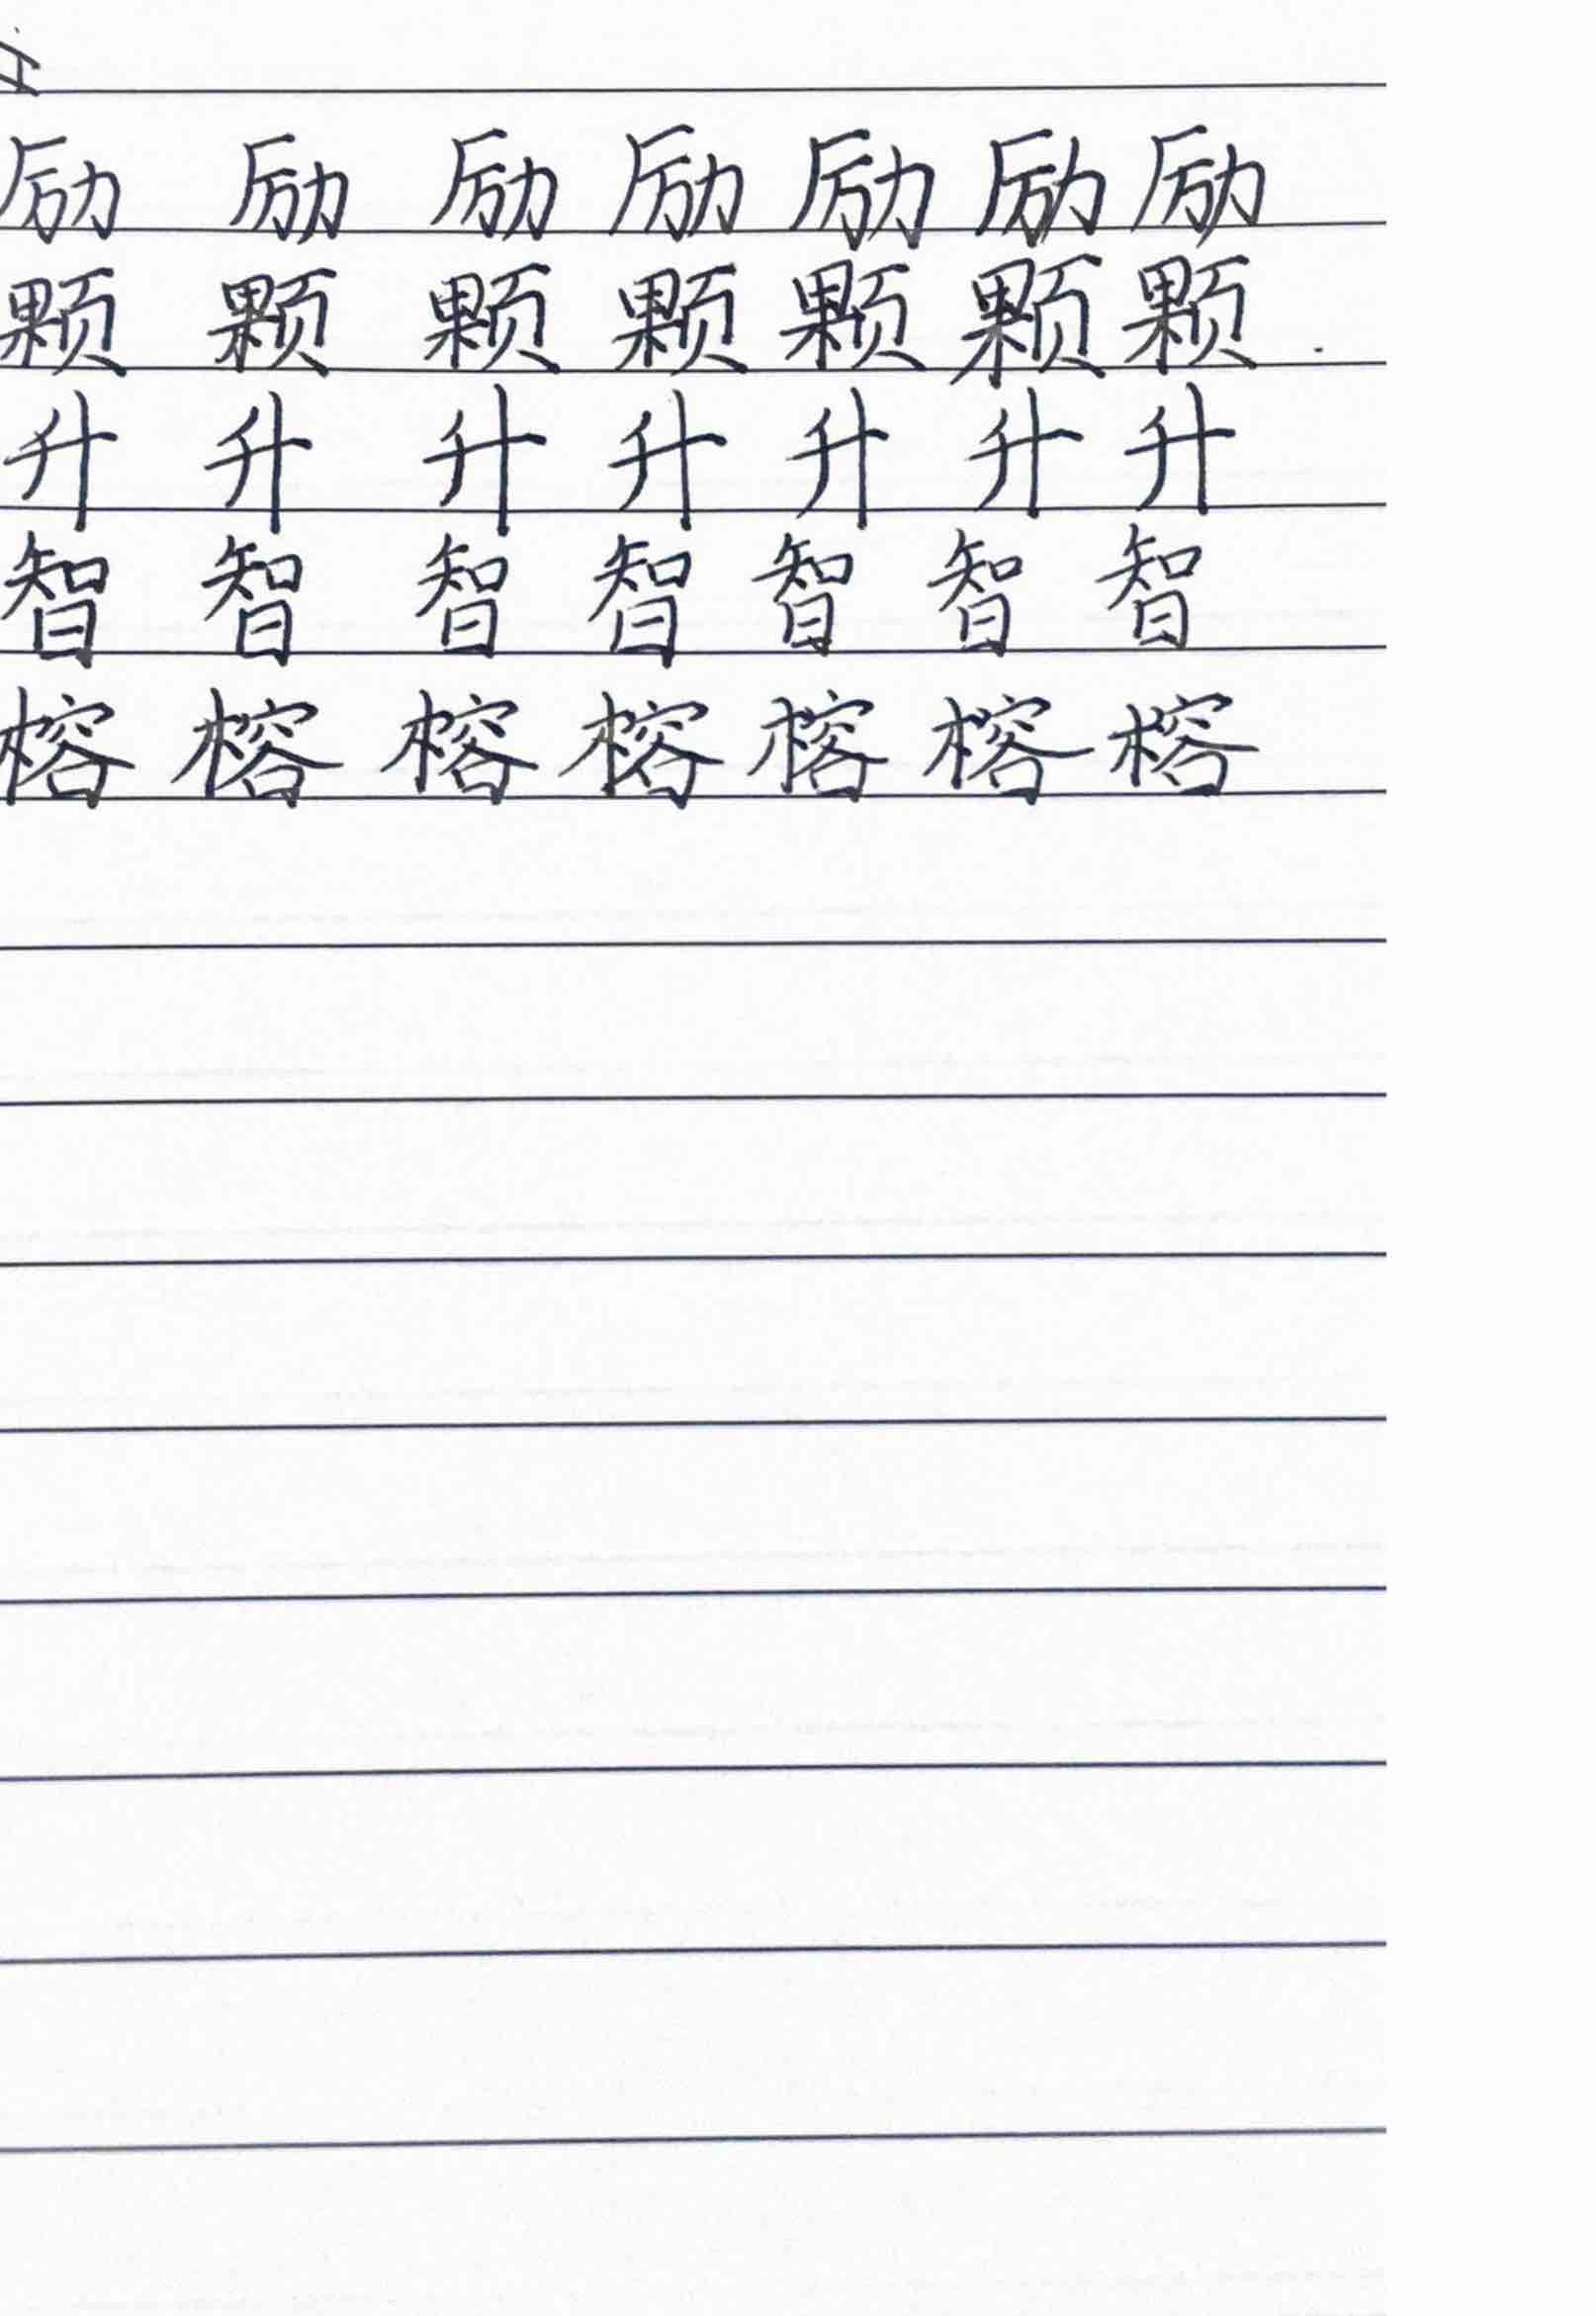 励 励 励 励 励 励 励
颗 颗 颗 颗 颗 颗 颗
升 升 升 升 升 升 升
智 智 智 智 智 智 智
榕 榕 榕 榕 榕 榕 榕